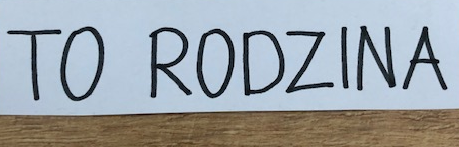 TO RODZINA